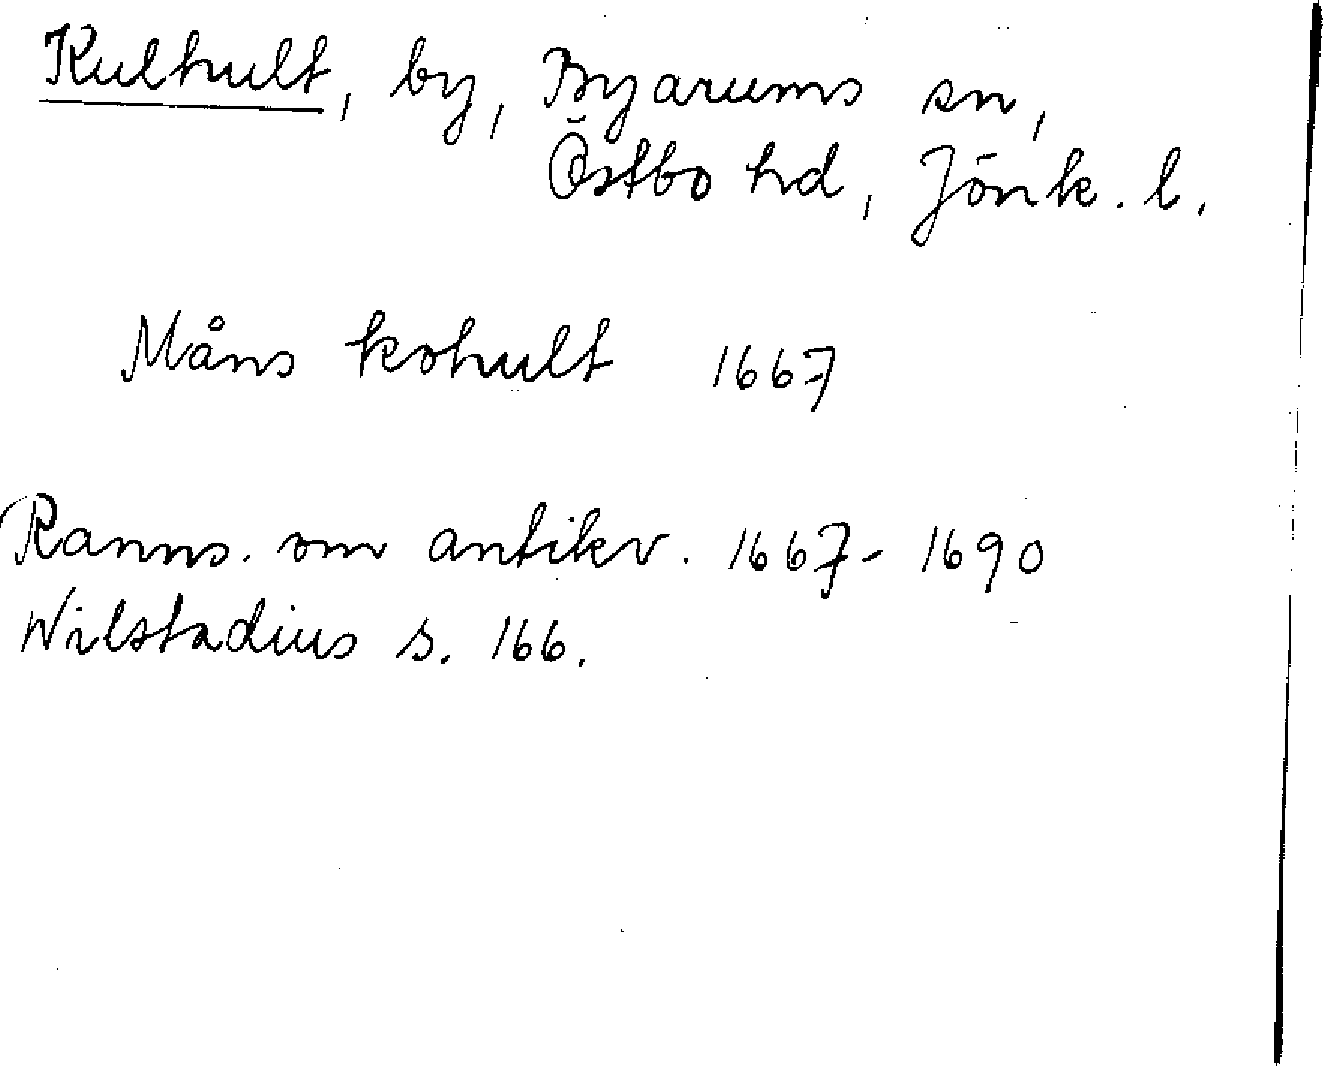 Kulhult, by, Byarums sn,
Östbo hd, Jönk. l.
Måns kohult 1667
Ranns. om antikv. 1667-1690
Wilstadius s. 166.